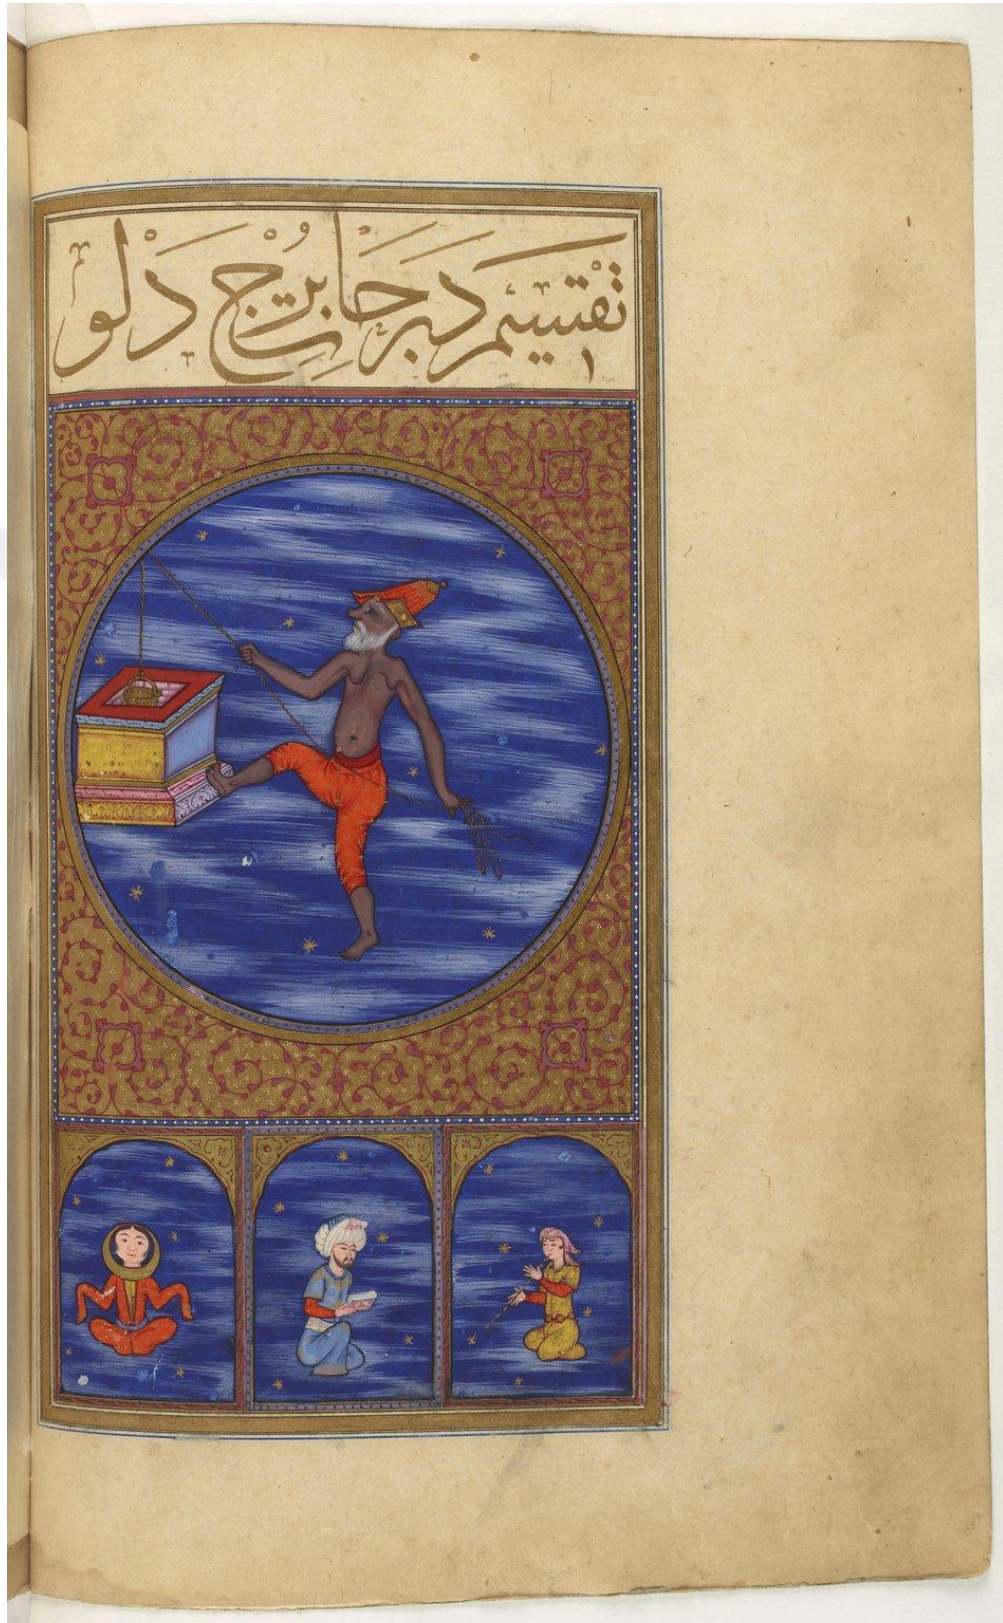 تقسيم درجات برج دلو